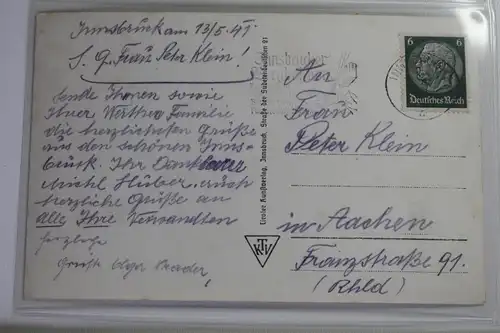 Innsbruck am 13/5.41
S. g. Frau Peter Klein!
Sende Ihnen sowie
Ihrer Werther Familie
die herzlichsten Grüße
aus den schönen Inns-
bruck. Ihr Dankbarer
Michl Huber, auch
herzliche Grüße an
alle Ihre Verwandten
Grüßt Olga
Tiroler Kunstverlag, Innsbruck, Straße der Sudetendeutschen 21
TKV
6 6
Deutsches Reich
An
Frau
Peter Klein
in Aachen
Franzstraße 91.
(Rhld)